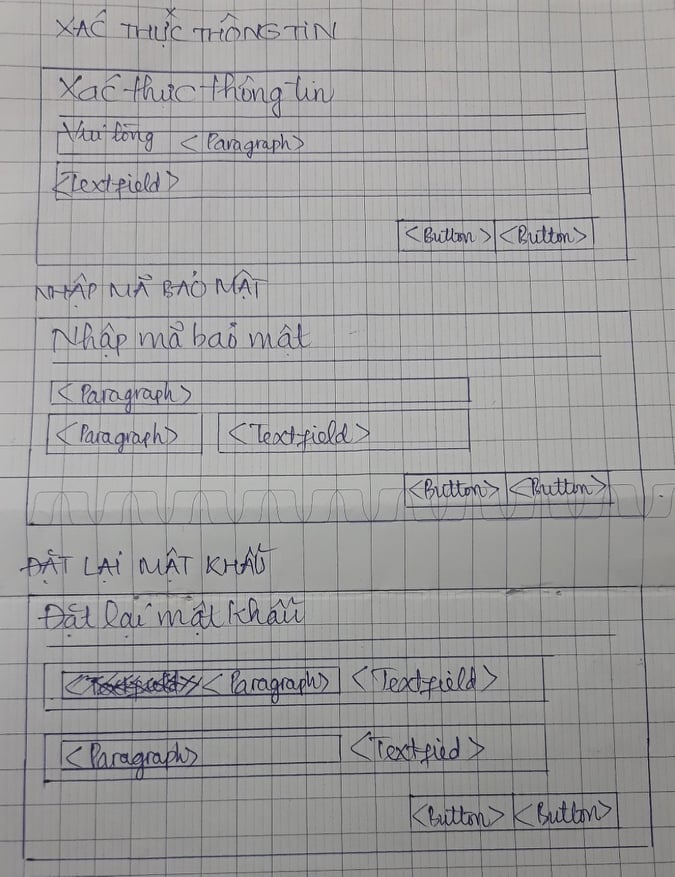 XÁC THỰC THÔNG TIN
Xác thực thông tin
Vui lòng <Paragraph>
<Textfield>
<Button> <Button>
NHẬP MÃ BẢO MẬT
Nhập mã bảo mật
<Paragraph>
<Paragraph> <Textfield>
<Button> <Button>
ĐẶT LẠI MẬT KHẨU
Đặt lại mật khẩu
<Paragraph> <Textfield>
<Paragraph> <Textfied>
<Button> <Button>